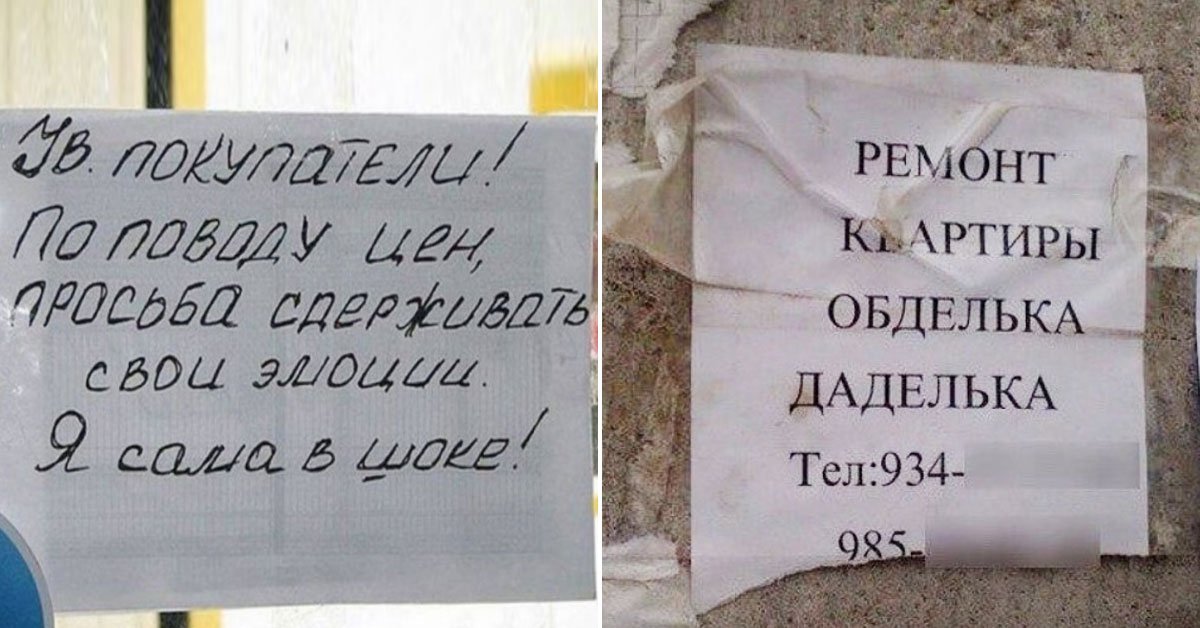 Ув. покупатели!
По поводу цен,
просьба сдерживать
свои эмоции.
Я сама в шоке!
РЕМОНТ
КВАРТИРЫ
ОБДЕЛЬКА
ДАДЕЛЬКА
Тел:934-
985-